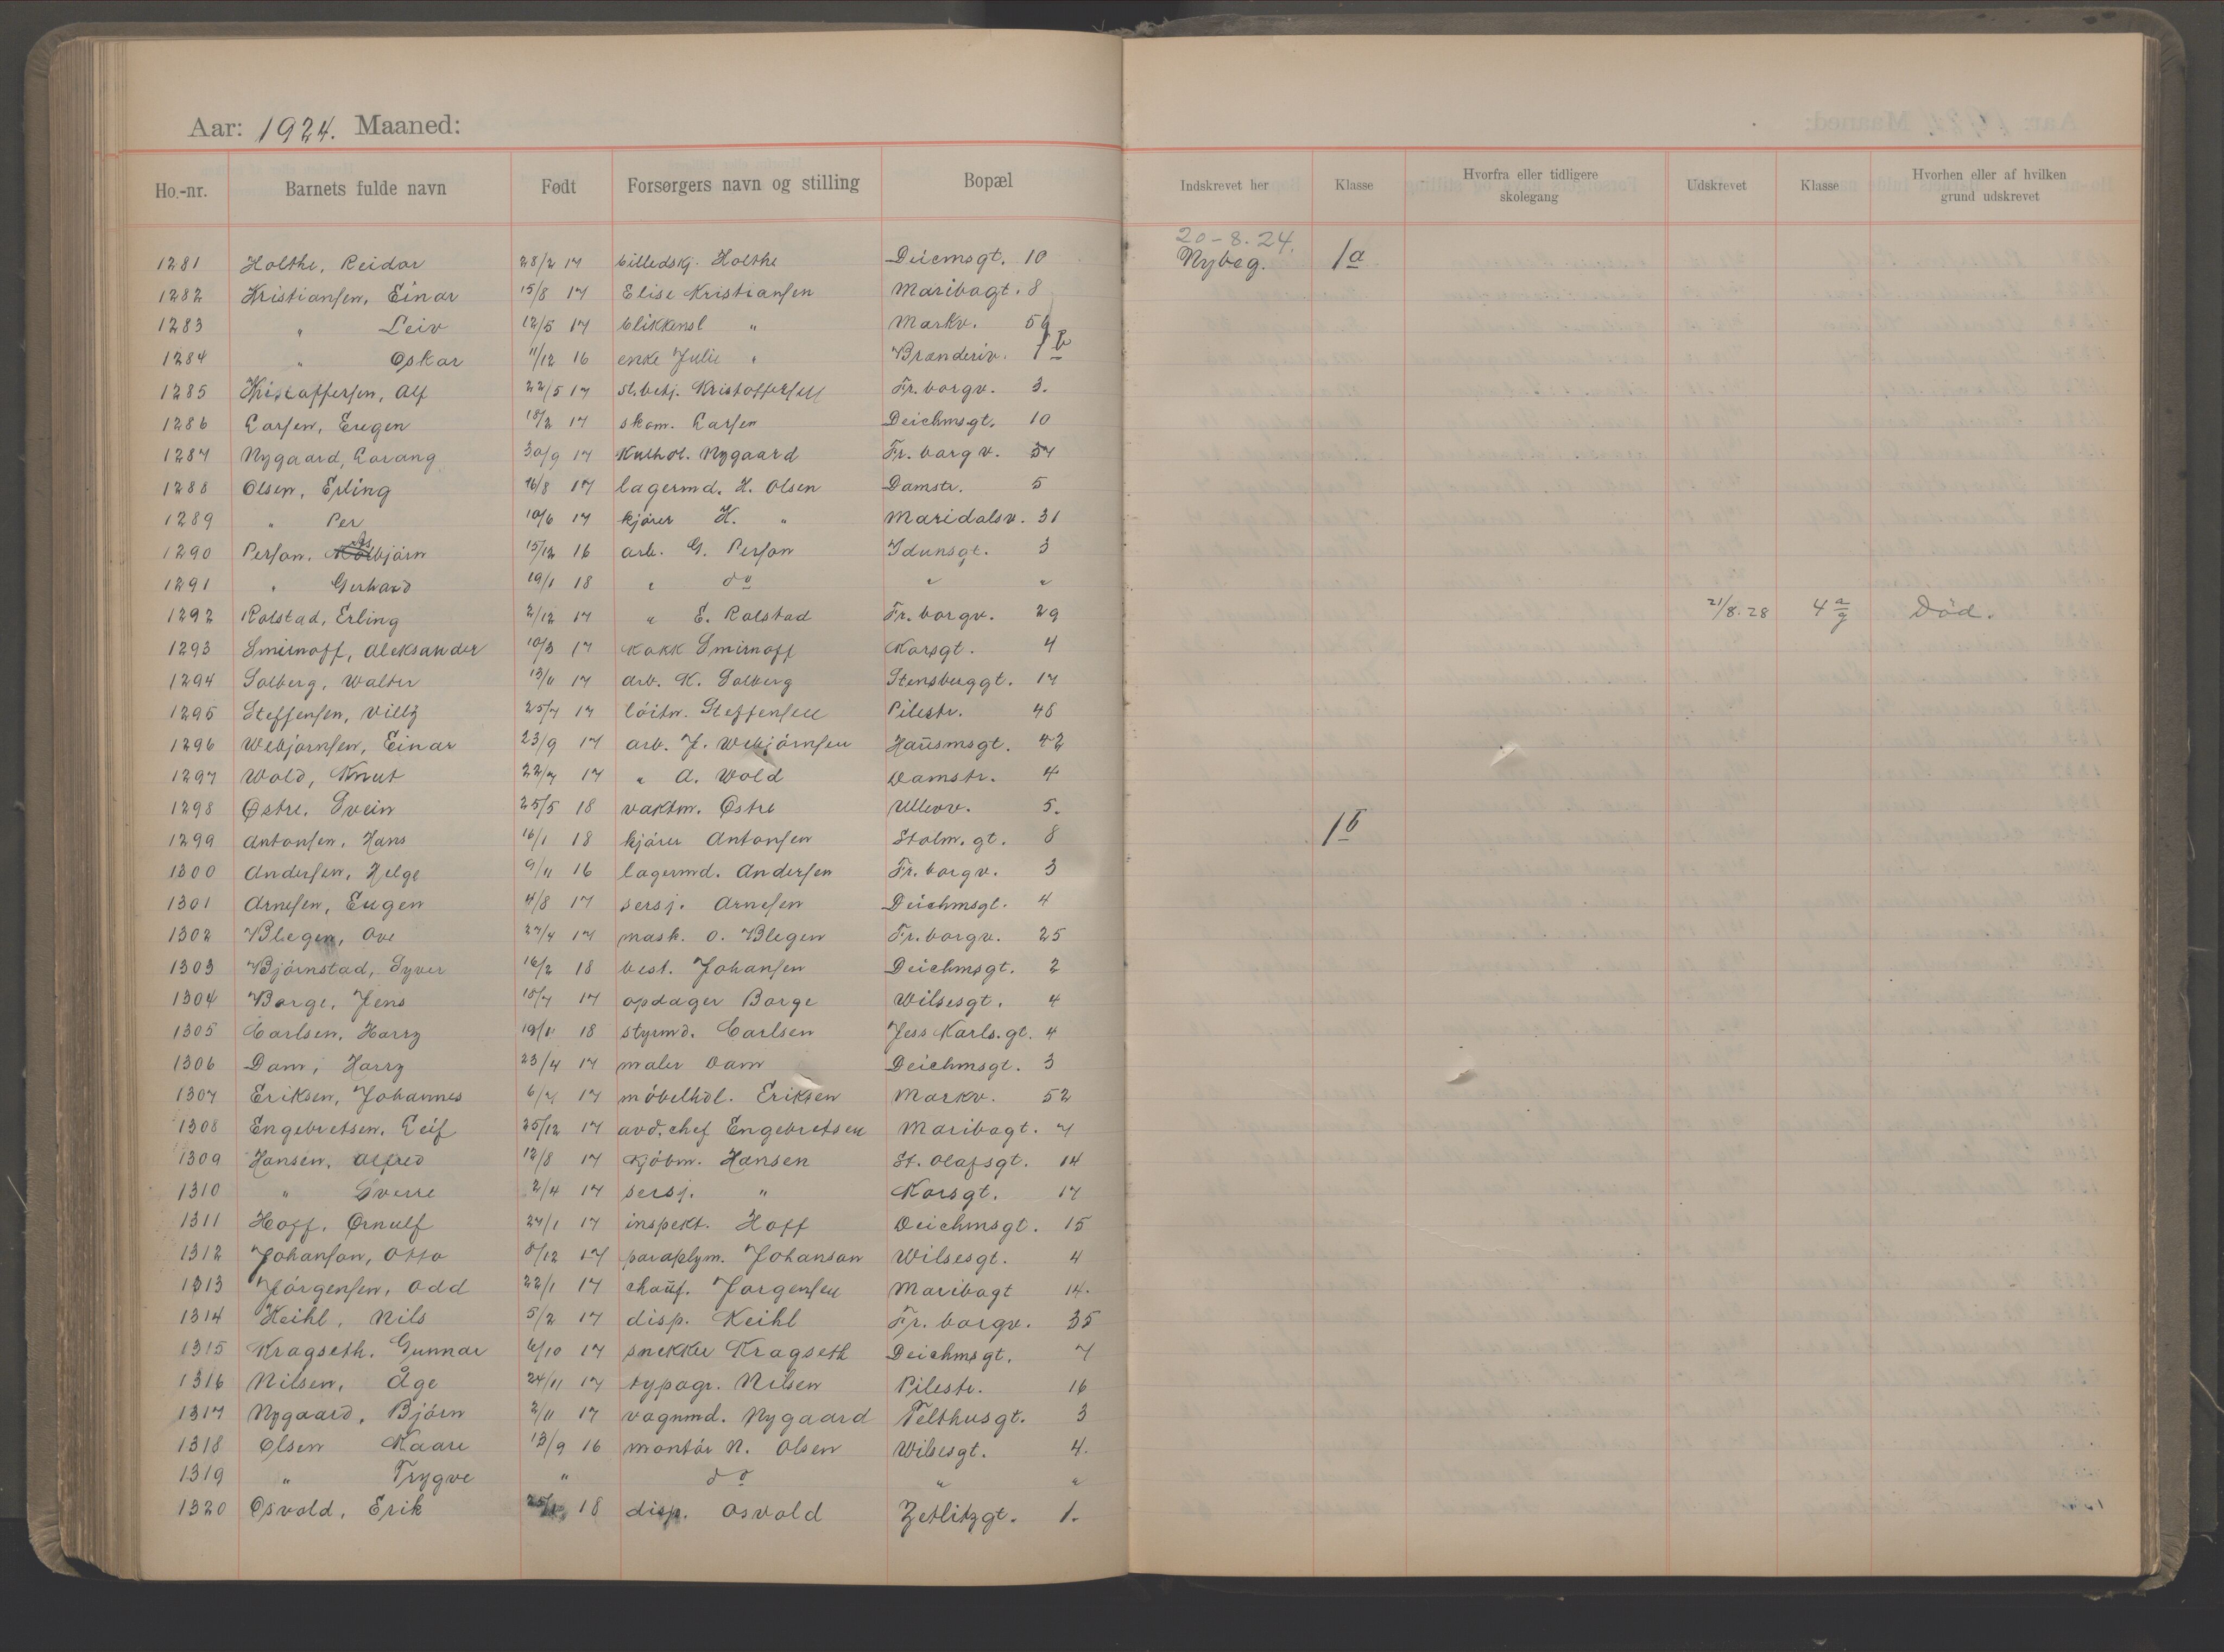 Aar: 1924. Maaned:
Ho.-nr. Barnets fulde navn Født Forsørgers navn og stilling Bopæl Indskrevet her Klasse Hvorfra eller tidligere skolegang Udskrevet Klasse Hvorhen eller af hvilken grund udskrevet
20-8.24.
1281 Holthe, Reidar 28/2 17 billedskj. Holthe Deicmsgt. 10 Nybeg. 1a
1282 Kristiansen, Einar 15/8 17 Elise Kristiansen Maribogt. 8
1283 " Leiv 12/5 17 blikkensl " Markv. 56
1284 " Oskar 11/12 16 enke Julie " Brænderiv. 1b
1285 Kristoffersen, Alf 22/5 17 st.betj. Kristoffersen Fr. borgv. 3.
1286 Larsen, Eugen 18/2 17 skom. Larsen Deichmsgt. 10
1287 Nygaard, Lorang 30/9 17 Kulhdl. Nygaard Fr. borgv. 37
1288 Olsen, Erling 16/8 17 lagermd. H. Olsen Damstr. 5
1289 " Per 10/6 17 kjører K. " Maridalsv. 31
1290 Person, Asbjörn 15/12 16 arb. G. Person Idunsgt. 3
1291 " Gerhard 19/1 18 " do " "
1292 Rolstad, Erling 2/12 17 " E. Rolstad Fr. borgv. 29 21/8.28 4 a/g Död.
1293 Smirnoff, Aleksander 10/3 17 kokk Smirnoff Korsgt. 4
1294 Solberg, Walter 13/11 17 arb. K. Solberg Stensberggt. 17
1295 Steffensen, Villy 25/7 17 löitn. Steffensen Pilestr. 48
1296 Webjørnsen, Einar 23/9 17 arb. J. Webjörnsen Hausmsgt. 42
1297 Wold, Knut 22/7 17 " A. Wold Damstr. 4
1298 Østre, Svein 25/5 18 vaktm. Østre Ullevv. 5.
1299 Antonsen, Hans 16/1 18 kjörer Antonsen Stolm. gt. 8 1b
1300 Andersen, Helge 9/11 16 lagermd. Andersen Fr. borgv. 3
1301 Arnesen, Eugen 4/8 17 sersj. Arnesen Deichmsgt. 4
1302 Blegen, Ove 27/4 17 mask. O. Blegen Fr. borgv. 25
1303 Björnstad, Syver 16/2 18 best. Johansen Deichmsgt. 2
1304 Borge, Jens 15/7 17 opdager Borge Wilsesgt. 4
1305 Carlsen, Harry 19/11 18 styrmd. Carlsen Jess Karls. gt. 4
1306 Dam, Harry 23/4 17 maler Dam Deichmsgt. 3
1307 Eriksen, Johannes 17 möbelhdl. Eriksen Markv. 52
1308 Engebretsen, Leif 25/12 17 avd. chef Engebretsen Maribogt. 7
1309 Hansen, Alfred 12/8 17 Kjöbm. Hansen St. Olafsgt. 14
1310 " Sverre 2/4 17 sersj. " Korsgt. 17
1311 Hoff, Ørnulf 27/1 17 inspekt. Hoff Deichmsgt. 15
1312 Johanson, Otto 8/12 17 paraplym. Johanson Wilsesgt. 4
1313 Jörgensen, Odd 22/1 17 chauf. Jorgensen Maribogt 14.
1314 Keihl, Nils 5/2 17 disp. Keihl Fr. borgv. 35
1315 Kragseth, Gunnar 6/10 17 snekker Kragseth Deichmsgt. 7
1316 Nilsen, Åge 24/11 17 typogr. Nilsen Pilestr. 16
1317 Nygaard, Björn 2/11 17 vognmd. Nygaard Telthusgt. 3
1318 Olsen Kaare 13/9 16 montör N. Olsen Wilsesgt. 4.
1319 " Trygve " do " "
1320 Osvold, Erik 18 disp. Osvold Zetlitzgt. 1.